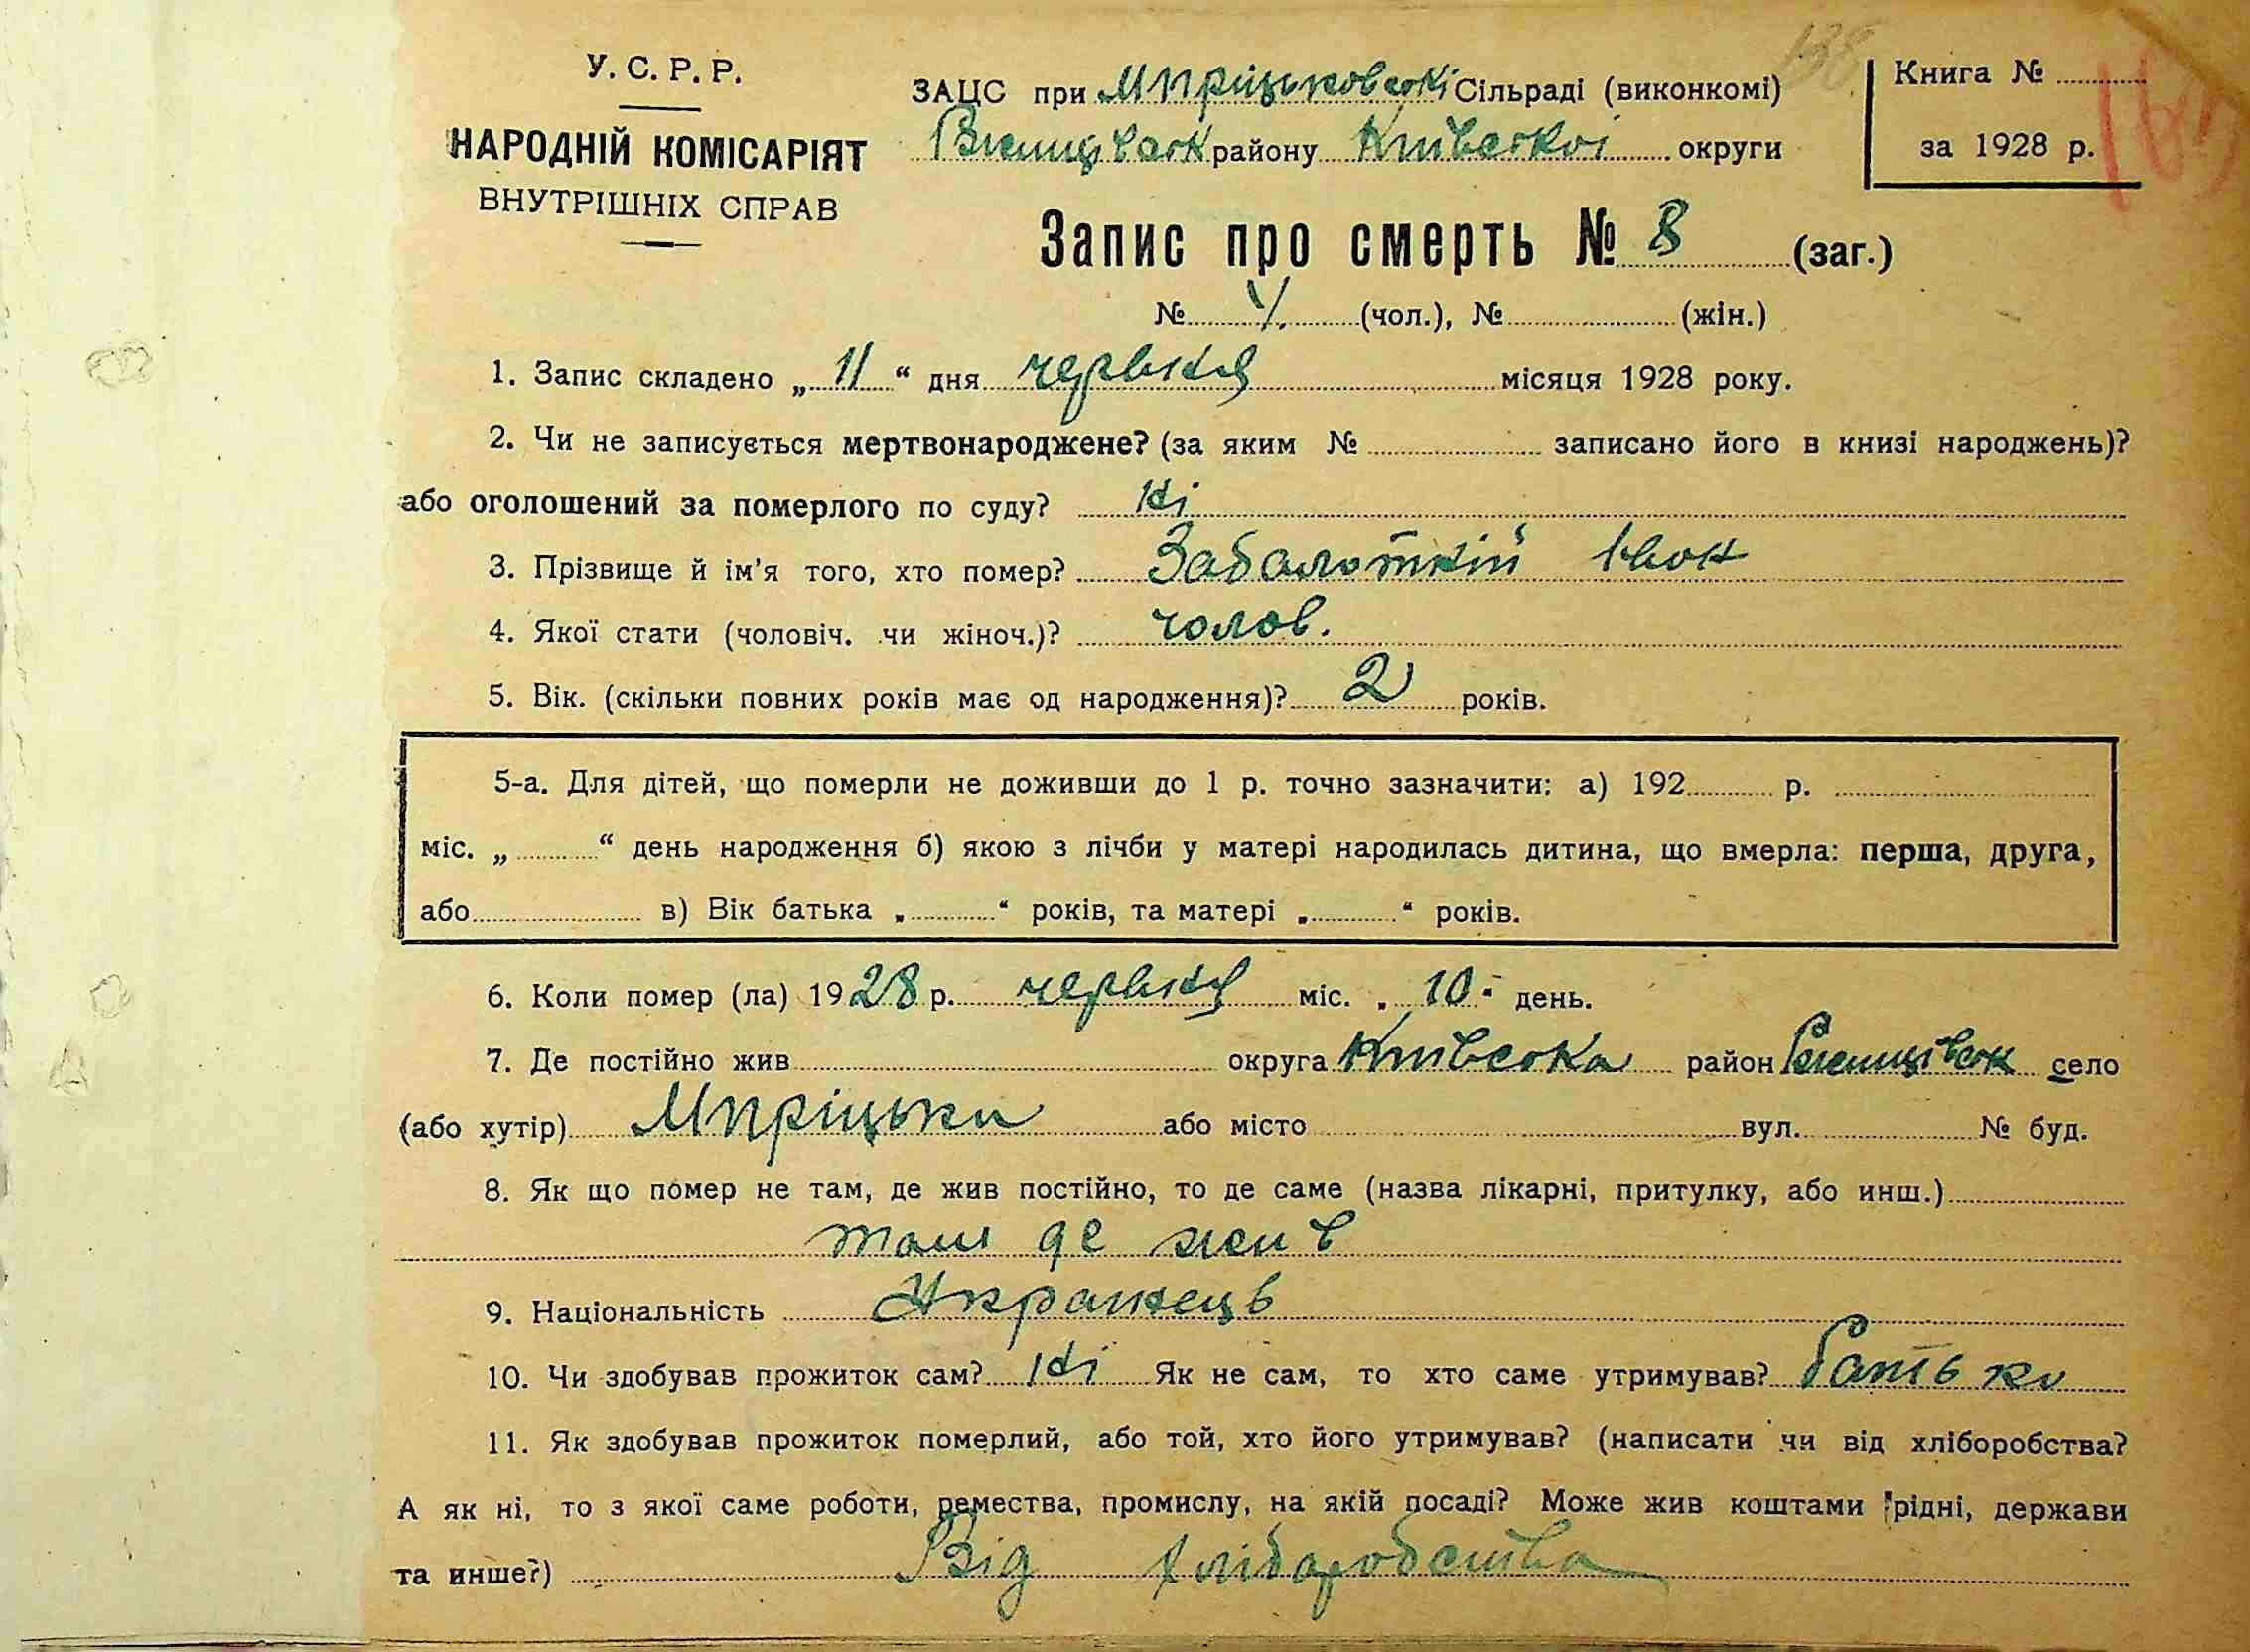 У. С. Р. Р.
НАРОДНІЙ КОМІСАРІЯТ
ВНУТРІШНІХ СПРАВ
138
ЗАЦС при Мпріцьковскі Сільраді (виконкомі)
району Київської округи
Книга №
за 1928 р.
Запис про смерть № 8 (заг.)
№ 4. (чол.), № (жін.)
1. Запис складено „ 11 “ дня червня місяця 1928 року.
2. Чи не записується мертвонароджене? (за яким № записано його в книзі народжень)?
або оголошений за померлого по суду? Ні
3. Прізвище й ім'я того, хто помер? Забалоткій Іван
4. Якої стати (чоловіч. чи жіноч.)? чолов.
5. Вік. (скільки повних років має од народження)? 2 років.
5-а. Для дітей, що померли не доживши до 1 р. точно зазначити: а) 192 р.
міс. „ “ день народження б) якою з лічби у матері народилась дитина, що вмерла: перша, друга,
або в) Вік батька „ “ років, та матері „ “ років.
6. Коли помер (ла) 1928 р. червня міс. „ 10 “ день.
7. Де постійно жив округа Київсока район село
(або хутір) Мпріцьки або місто вул. № буд.
8. Як що помер не там, де жив постійно, то де саме (назва лікарні, притулку, або инш.)
там де жив
9. Національність Українець
10. Чи здобував прожиток сам? Ні Як не сам, то хто саме утримував? батько
11. Як здобував прожиток померлий, або той, хто його утримував? (написати чи від хліборобства?
А як ні, то з якої саме роботи, ремества, промислу, на якій посаді? Може жив коштами рідні, держави
та инше?) Від хліборобства